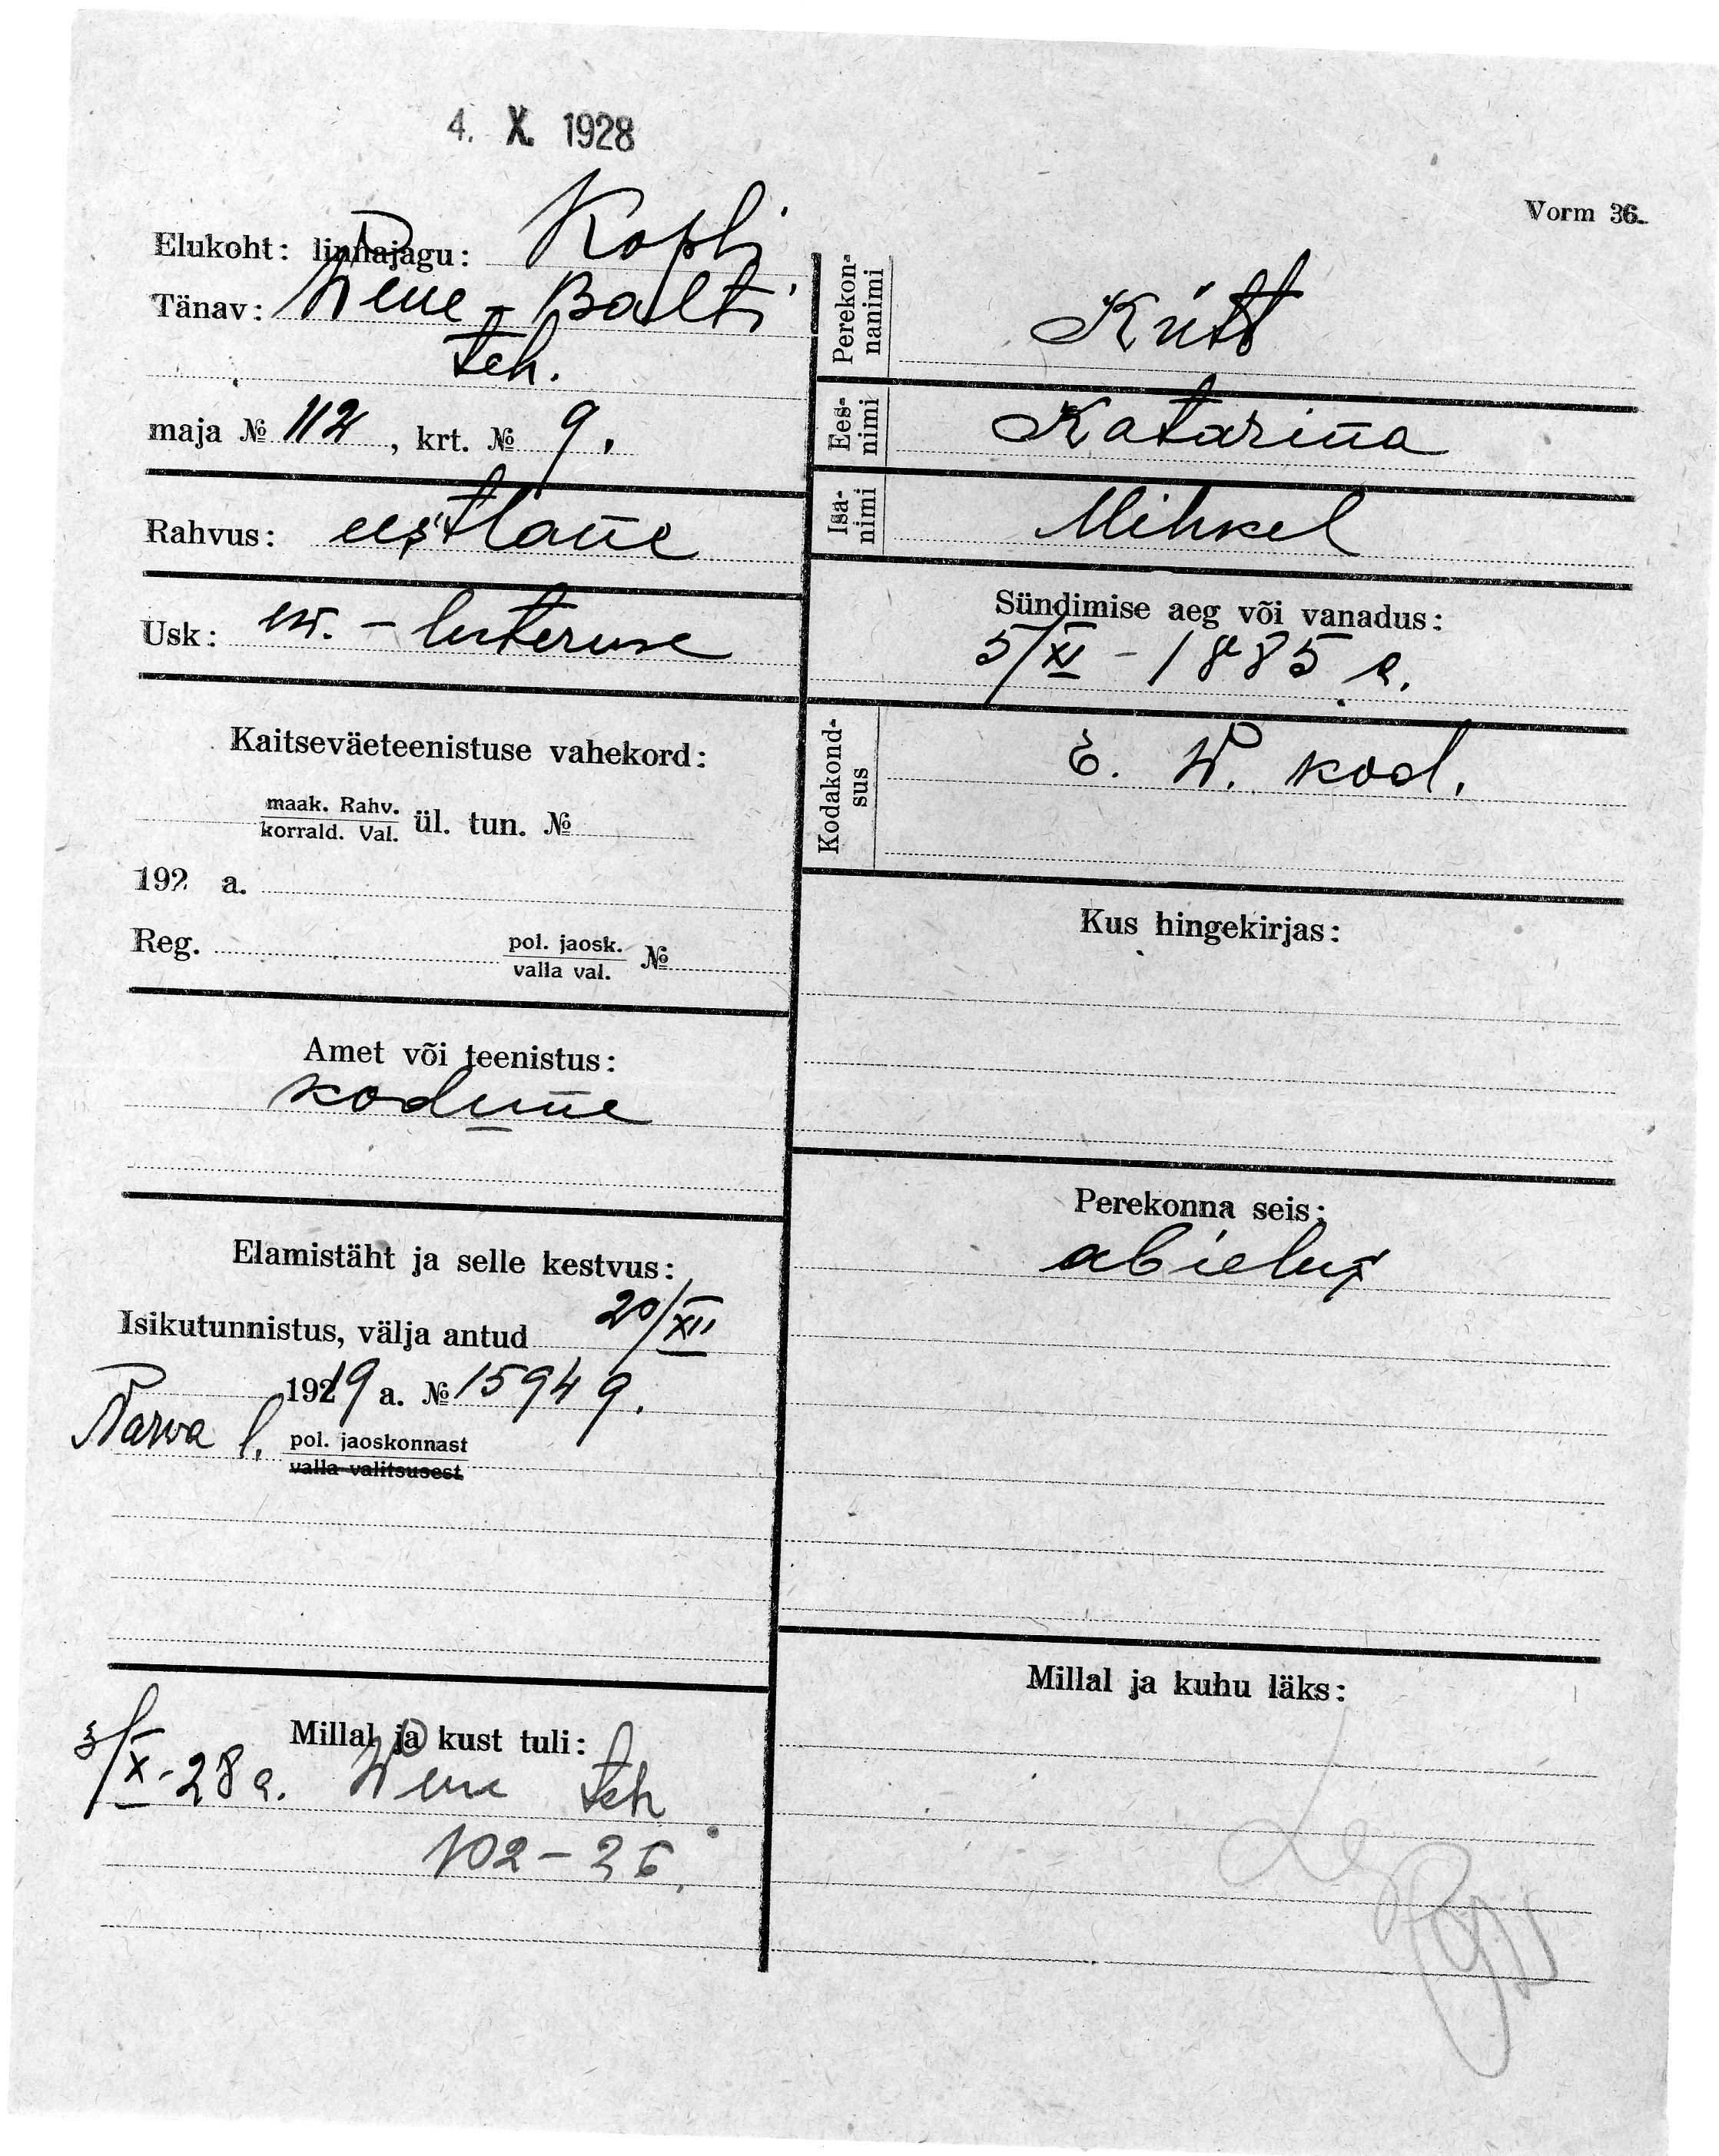 4. X. 1928
Vorm 36.
Elukoht: linnajagu: Kopli
Tänav: Wene-Balti
teh.
maja № 112, krt. № 9.
Rahvus: eestlane
Usk: ev.-luteruse
Kaitseväeteenistuse vahekord:
maak. Rahv.
korrald. Val. ül. tun. №
192 a.
Reg. pol. jaosk.
valla val. №
Amet või teenistus:
kodune
Elamistäht ja selle kestvus:
Isikutunnistus, välja antud 20/XII
1919 a. № 15949.
Narva l. pol. jaoskonnast
valla valitsusest
Millal ja kust tuli:
3/X-28 a. Wene teh
102-26.
Perekon-
nanimi Kütt
Ees-
nimi Katarina
Isa-
nimi Mihkel
Sündimise aeg või vanadus:
5/XI-1885 a.
Kodakond-
sus E. W. kod.
Kus hingekirjas:
Perekonna seis:
abielus
Millal ja kuhu läks: